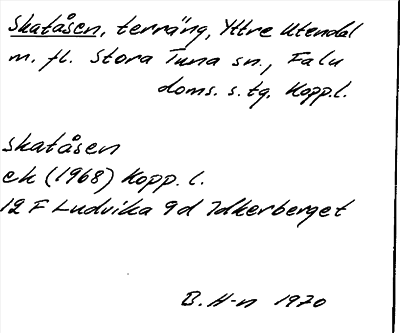 Skatåsen, terräng, Yttre Utendal
m. fl. Stora Tuna sn., Falu
doms. s. tg. Kopp.l.
skatåsen
ek (1968) Kopp. l.
12 F Ludvika 9d Idkerberget
B. H-n 1970